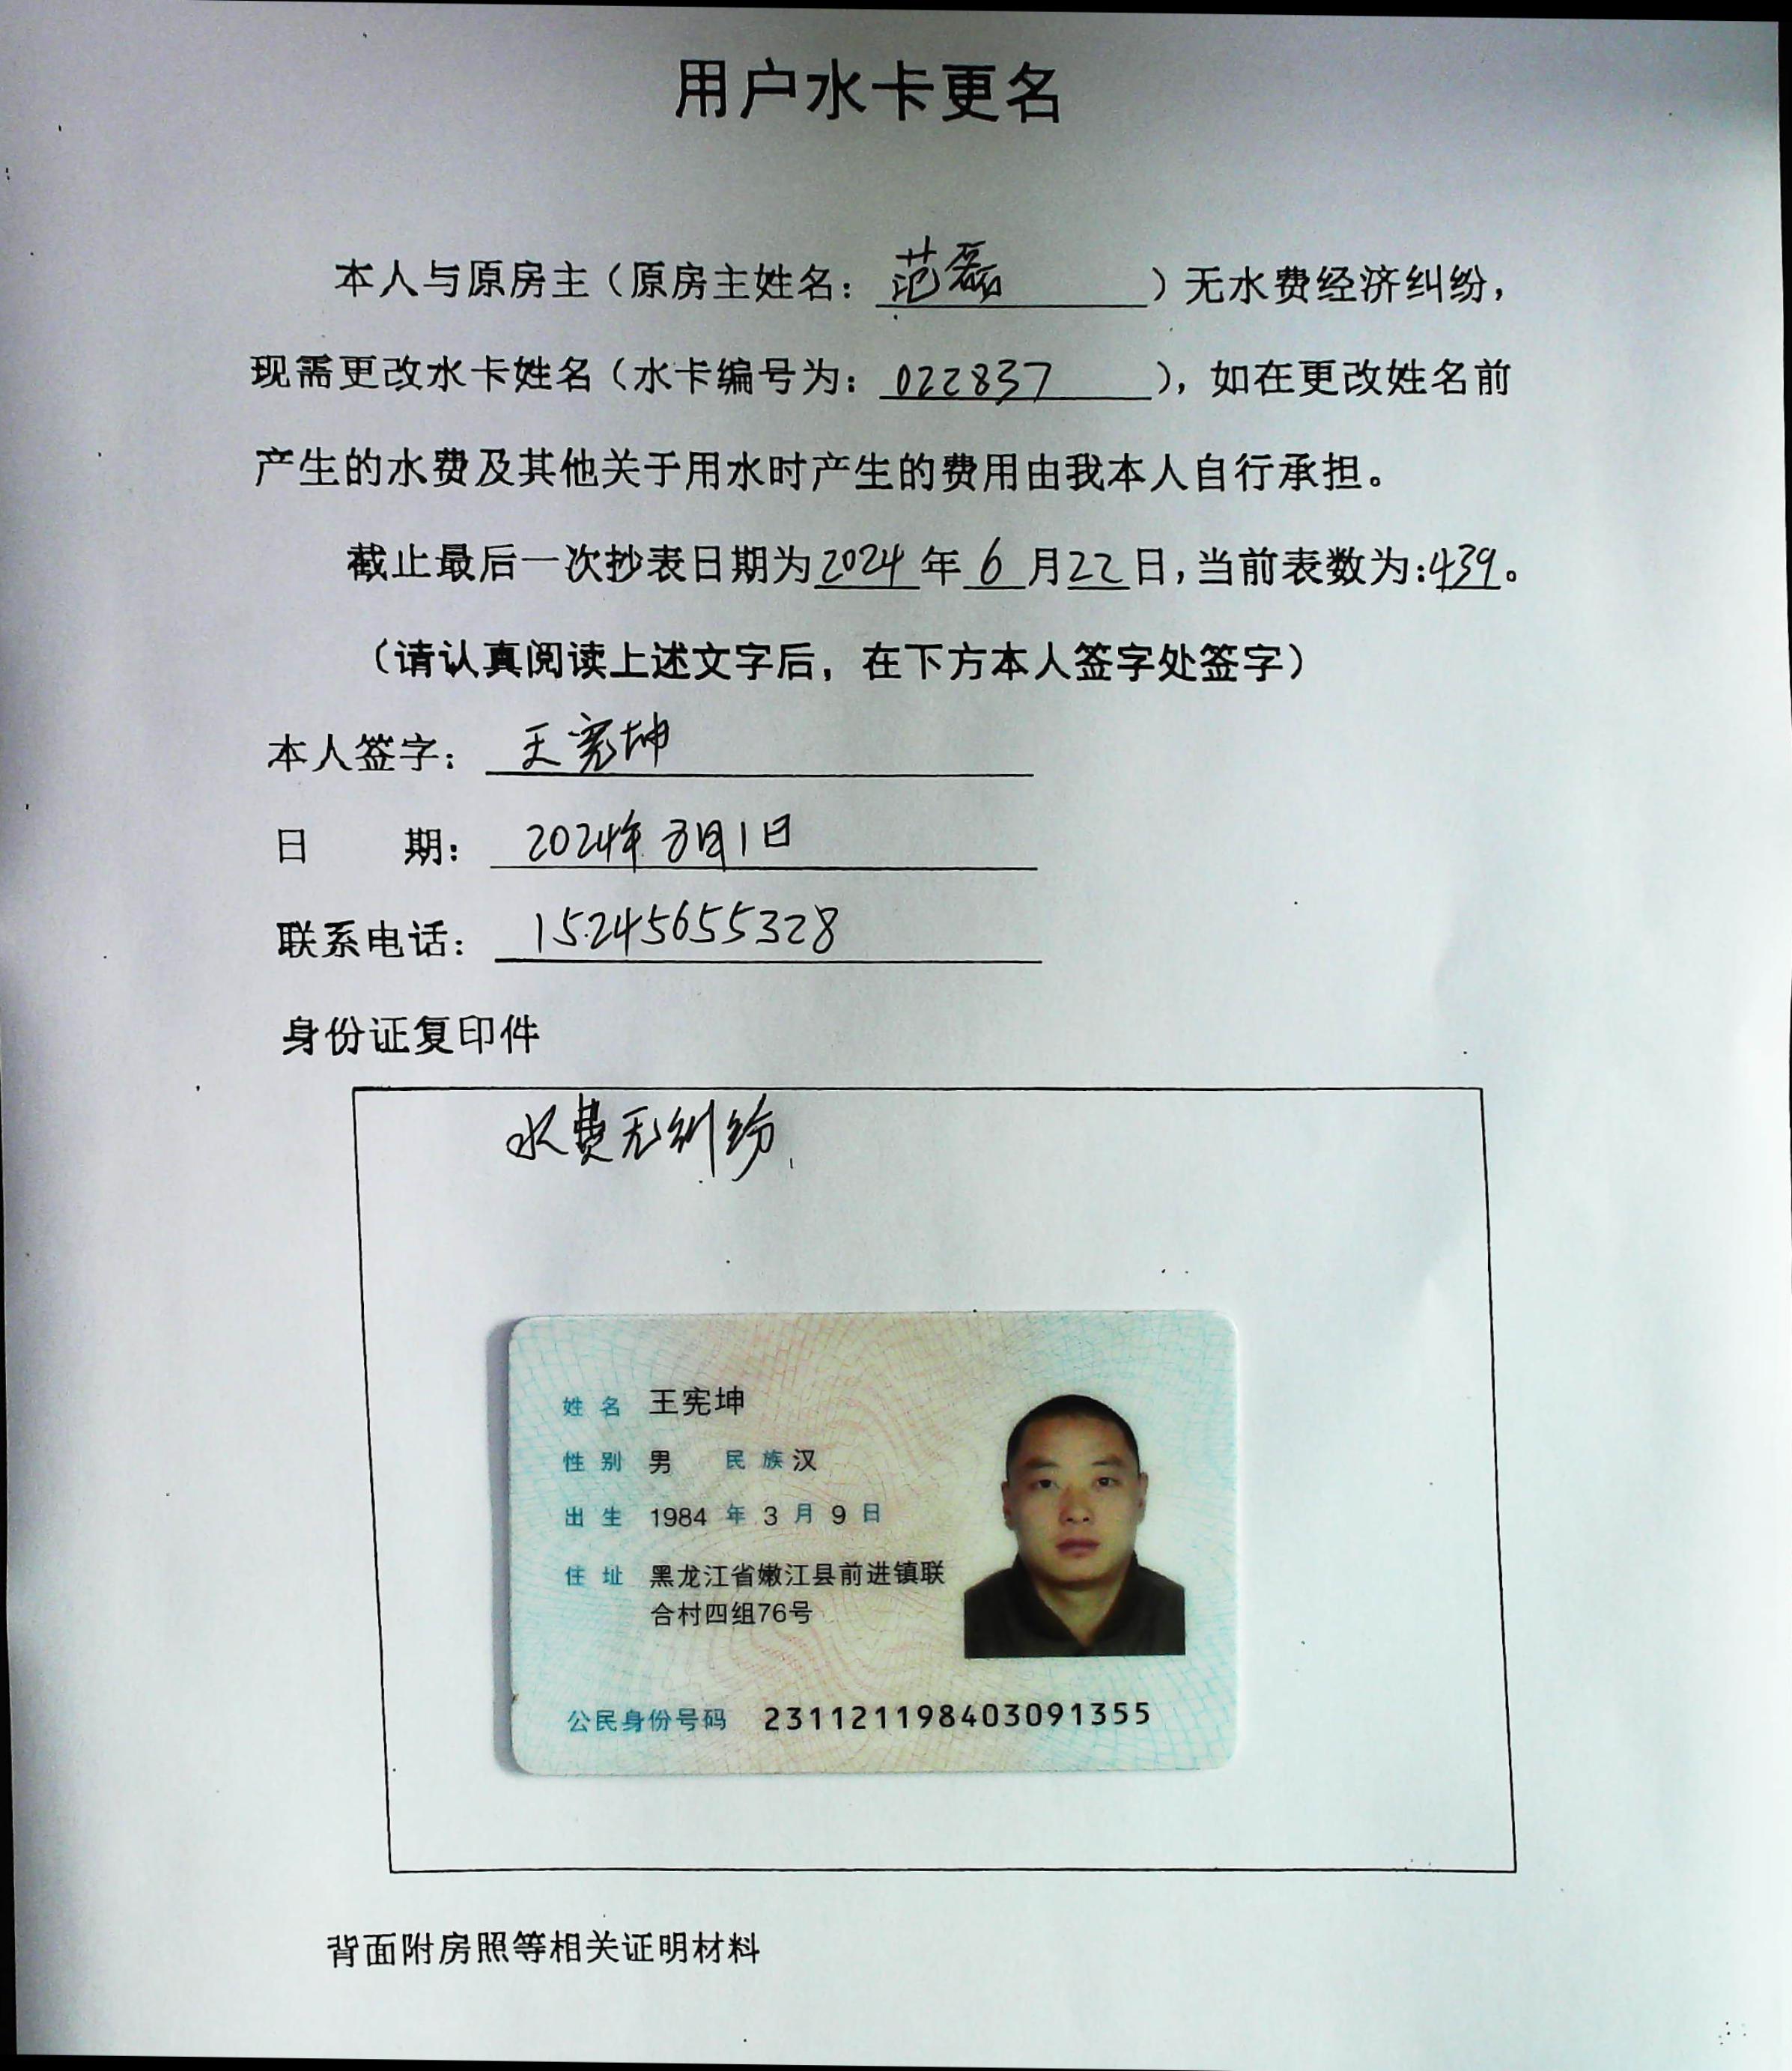 用户水卡更名
本人与原房主（原房主姓名：范磊）无水费经济纠纷，
现需更改水卡姓名（水卡编号为：022837），如在更改姓名前
产生的水费及其他关于用水时产生的费用由我本人自行承担。
截止最后一次抄表日期为2024年6月22日，当前表数为：439。
（请认真阅读上述文字后，在下方本人签字处签字）
本人签字：王宪坤
日 期：2024年 月1日
联系电话：15245655328
身份证复印件
水费无纠纷
姓名 王宪坤
性别 男 民族 汉
出生 1984 年 3 月 9 日
住址 黑龙江省嫩江县前进镇联
合村四组76号
公民身份号码 231121198403091355
背面附房照等相关证明材料